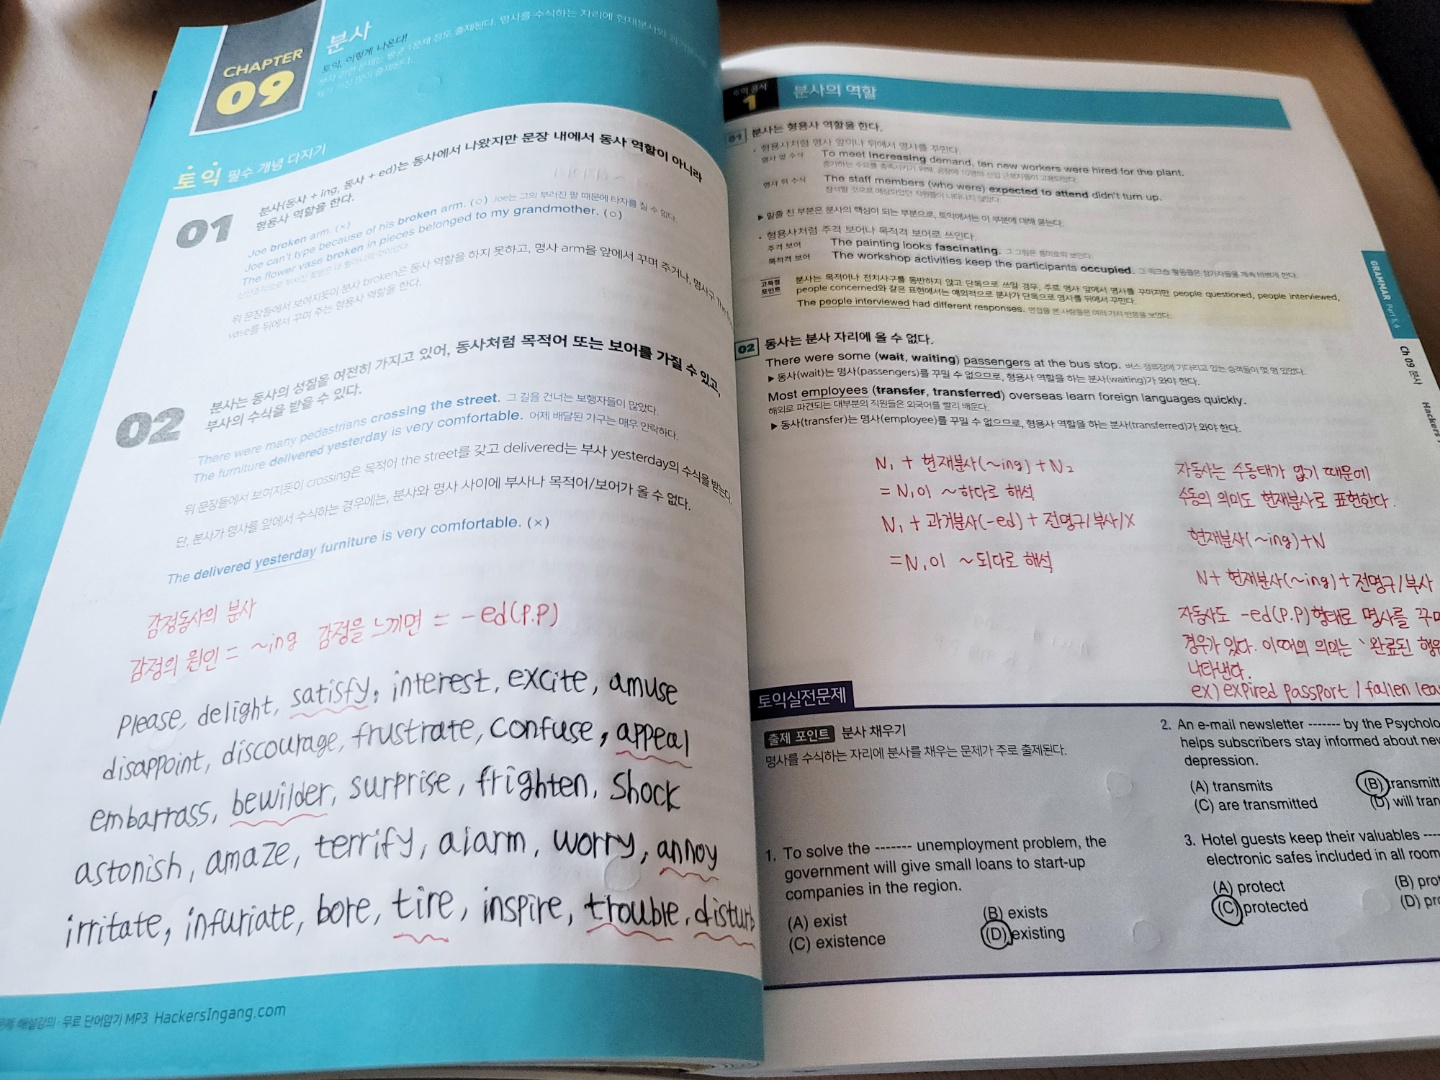 CHAPTER
09
분사
토익, 이렇게 나온다!
토익 필수 개념 다지기
01
분사(동사 + ing, 동사 + ed)는 동사에서 나왔지만 문장 내에서 동사 역할이 아니라
형용사 역할을 한다.
Joe broken arm. (×)
Joe can't type because of his broken arm. (○) Joe는 그의 부러진 팔 때문에 타자를 칠 수 없다.
The flower vase broken in pieces belonged to my grandmother. (○)
위 문장들에서 보여지듯이 분사 broken은 동사 역할을 하지 못하고, 명사 arm을 앞에서 꾸며 주거나, 명사구
vase를 뒤에서 꾸며 주는 형용사 역할을 한다.
02
분사는 동사의 성질을 여전히 가지고 있어, 동사처럼 목적어 또는 보어를 가질 수 있고,
부사의 수식을 받을 수 있다.
There were many pedestrians crossing the street. 그 길을 건너는 보행자들이 많았다.
The furniture delivered yesterday is very comfortable. 어제 배달된 가구는 매우 안락하다.
위 문장들에서 보여지듯이 crossing은 목적어 the street를 갖고 delivered는 부사 yesterday의 수식을 받는다.
단, 분사가 명사를 앞에서 수식하는 경우에는, 분사와 명사 사이에 부사나 목적어/보어가 올 수 없다.
The delivered yesterday furniture is very comfortable. (×)
감정동사의 분사
감정의 원인 = ~ing 감정을 느끼면 = -ed(P.P)
please, delight, satisfy, interest, excite, amuse
disappoint, discourage, frustrate, confuse, appeal
embarrass, bewilder, surprise, frighten, shock
astonish, amaze, terrify, alarm, worry, annoy
irritate, infuriate, bore, tire, inspire, trouble, disturb
해설강의·무료 단어암기 MP3 HackersIngang.com
1
분사의 역할
01 분사는 형용사 역할을 한다.
· 형용사처럼 명사 앞이나 뒤에서 명사를 꾸민다.
명사 앞 수식 To meet increasing demand, ten new workers were hired for the plant.
명사 뒤 수식 The staff members (who were) expected to attend didn't turn up.
▶ 밑줄 친 부분은 분사의 핵심이 되는 부분으로, 토익에서는 이 부분에 대해 묻는다.
· 형용사처럼 주격 보어나 목적격 보어로 쓰인다.
주격 보어 The painting looks fascinating. 그 그림은 흥미로워 보인다.
목적격 보어 The workshop activities keep the participants occupied. 그 워크숍 활동들은 참가자들을 계속 바쁘게 한다.
고득점 포인트 분사는 목적어나 전치사구를 동반하지 않고 단독으로 쓰일 경우, 주로 명사 앞에서 명사를 꾸미지만 people questioned, people interviewed,
people concerned와 같은 표현에서는 예외적으로 분사가 단독으로 명사를 뒤에서 꾸민다.
The people interviewed had different responses. 면접을 본 사람들은 여러 가지 반응을 보였다.
02 동사는 분사 자리에 올 수 없다.
There were some (wait, waiting) passengers at the bus stop. 버스 정류장에 기다리고 있는 승객들이 몇 명 있었다.
▶ 동사(wait)는 명사(passengers)를 꾸밀 수 없으므로, 형용사 역할을 하는 분사(waiting)가 와야 한다.
Most employees (transfer, transferred) overseas learn foreign languages quickly.
해외로 파견되는 대부분의 직원들은 외국어를 빨리 배운다.
▶ 동사(transfer)는 명사(employee)를 꾸밀 수 없으므로, 형용사 역할을 하는 분사(transferred)가 와야 한다.
N₁ + 현재분사(~ing) + N₂
= N₁이 ~하다로 해석
N₁ + 과거분사(-ed) + 전명구/부사/X
= N₁이 ~되다로 해석
자동사는 수동태가 없기 때문에
수동의 의미도 현재분사로 표현한다.
현재분사(~ing)+N
N+ 현재분사(~ing)+전명구/부사
자동사도 -ed(P.P)형태로 명사를 꾸미
경우가 있다. 이때의 의미는 '완료된 행위
나타낸다.
ex) expired passport / fallen lea
GRAMMAR Part 5, 6
Ch 09 분사
Hackers
토익실전문제
출제 포인트 분사 채우기
명사를 수식하는 자리에 분사를 채우는 문제가 주로 출제된다.
1. To solve the ------- unemployment problem, the
government will give small loans to start-up
companies in the region.
(A) exist
(B) exists
(C) existence
(D) existing
2. An e-mail newsletter ------- by the Psycholo
helps subscribers stay informed about new
depression.
(A) transmits
(B) transmitt
(C) are transmitted
(D) will tran
3. Hotel guests keep their valuables ----
electronic safes included in all room
(A) protect
(B) prot
(C) protected
(D) pro